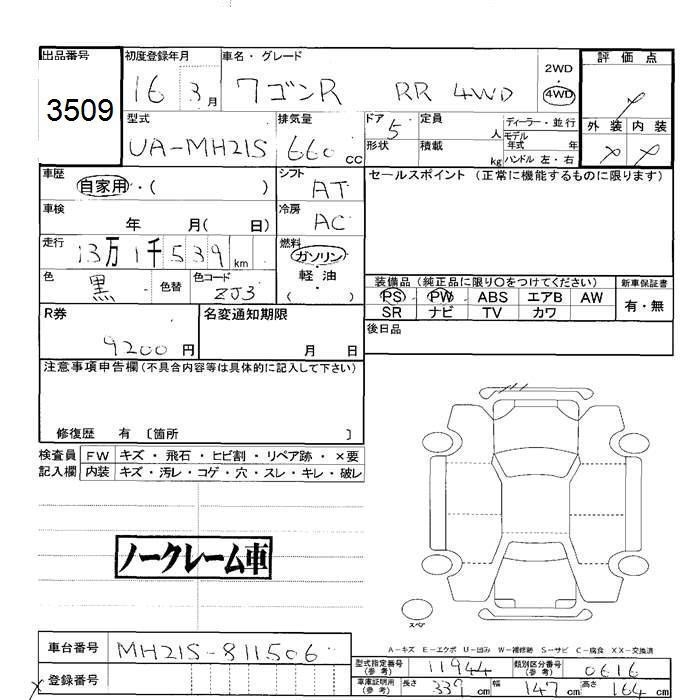 出品番号
3509
初度登録年月
16 3月
車名・グレード
ワゴンR RR 4WD
2WD
・
4WD
評価点
外装 内装
型式
UA-MH21S
排気量
660 cc
ドア 5
形状
定員 人
積載 kg
ディーラー・並行
モデル年式 年
ハンドル 左・右
車歴
自家用・( )
シフト
AT
セールスポイント (正常に機能するものに限ります)
車検
年 月( 日)
冷房
AC
走行
13万1千539km
燃料
ガソリン
・
軽油
( )
色
黒
色替
色コード
ZJ3
装備品 (純正品に限り〇をつけてください)
PS PW ABS エアB AW
SR ナビ TV カワ
新車保証書
有・無
R券
9200円
名変通知期限
月 日
後日品
注意事項申告欄(不具合内容等は具体的に記入して下さい)
修復歴 有 〔箇所 〕
検査員記入欄
FW キズ・飛石・ヒビ割・リペア跡・×要
内装 キズ・汚レ・コゲ・穴・スレ・キレ・破レ
ノークレーム車
スペア
A-キズ E-エクボ U-凹み W-補修跡 S-サビ C-腐食 XX-交換済
車台番号
MH21S-811506
登録番号
型式指定番号(参考)
11944
類別区分番号(参考)
0616
車庫証明用(参考)
長さ 339cm
幅 147cm
高さ 164cm